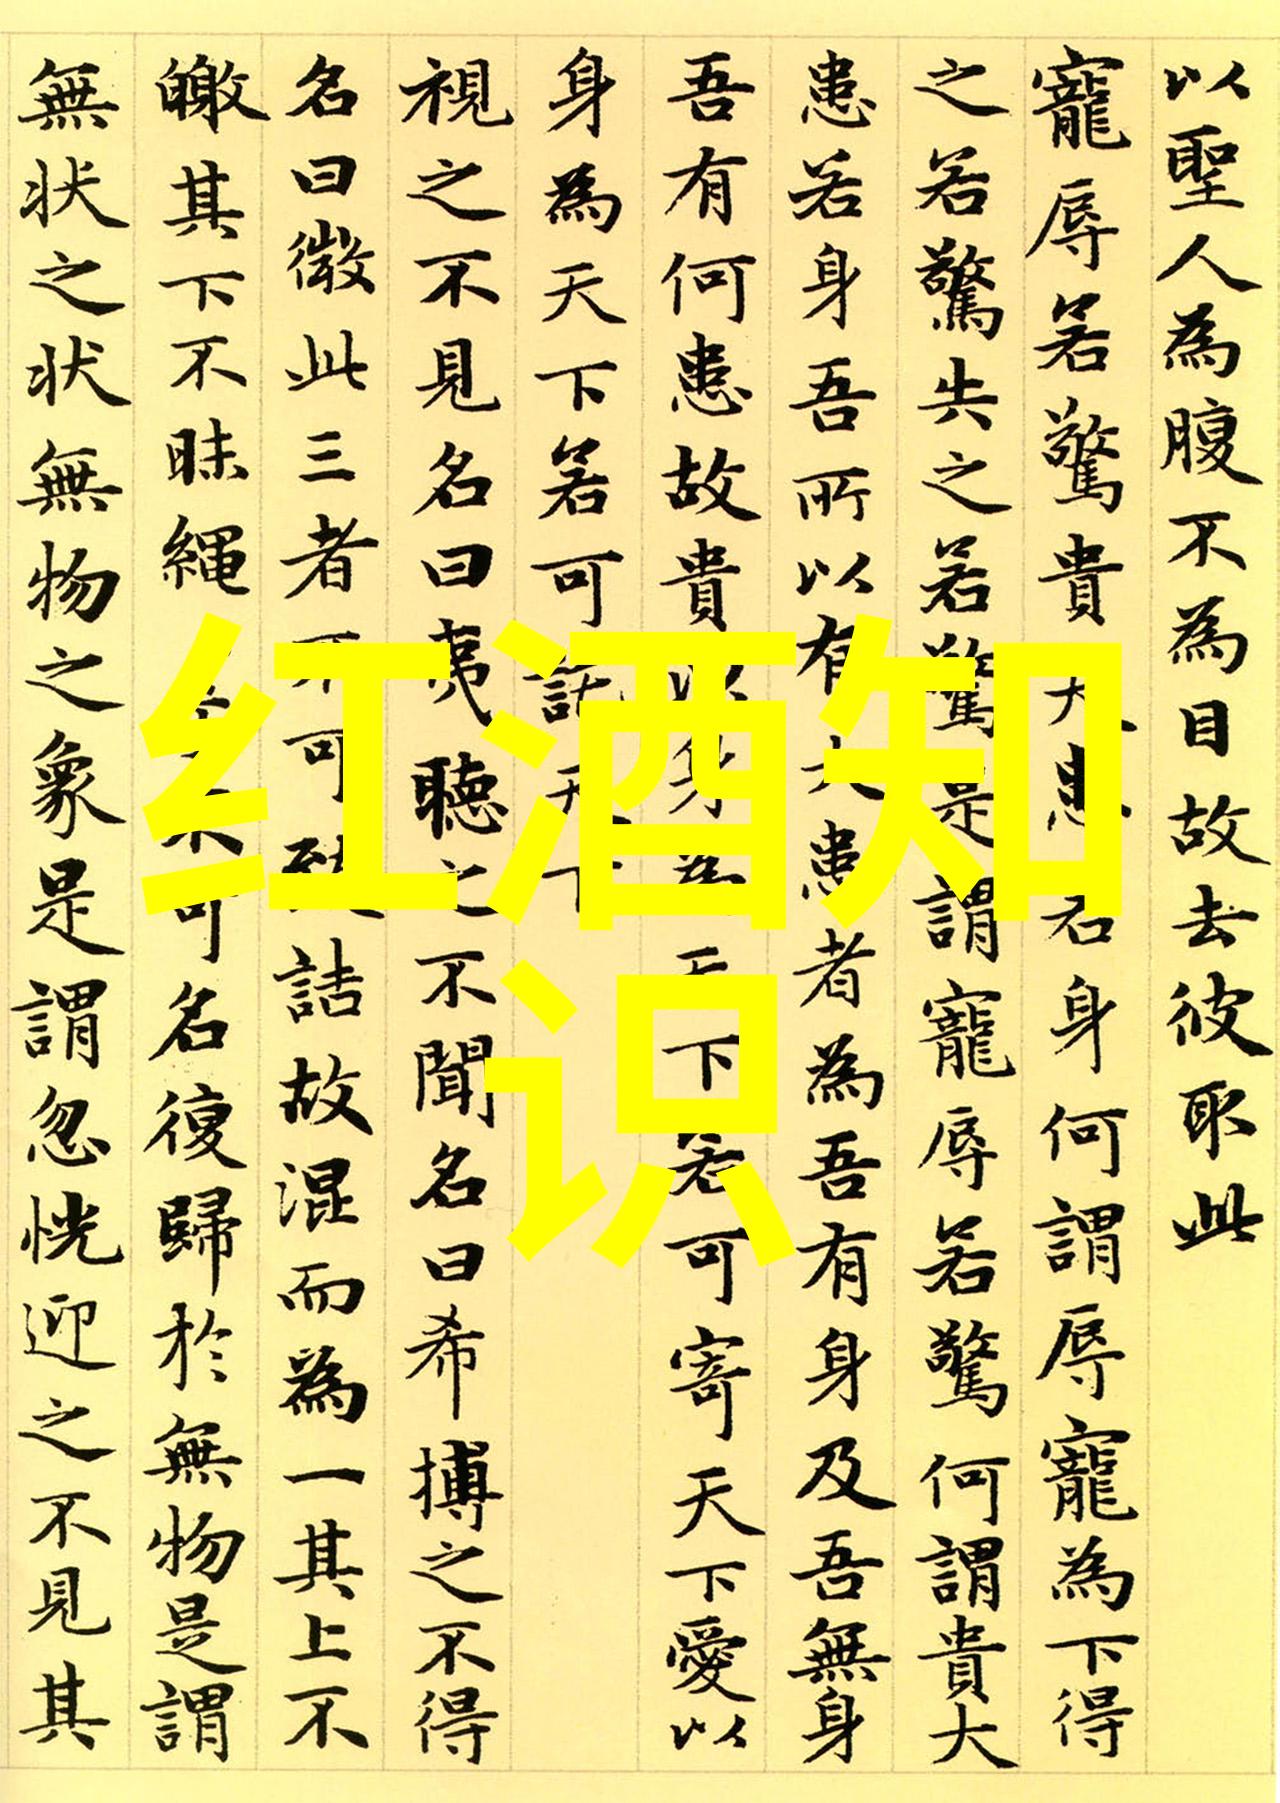 以聖人為腹不為目故去彼取此
寵辱若驚貴大患若身何謂辱寵為下得
之若驚失之若驚是謂寵辱若驚何謂貴大
患若身吾所以有大患者為吾有身及吾無身
吾有何患故貴以身為天下若可寄天下愛以
身為天下若可託天下
視之不見名曰夷聽之不聞名曰希搏之不得
名曰微此三者不可致詰故混而為一其上不
皦其下不昧繩繩不可名復歸於無物是謂
無状之状無物之象是謂忽恍迎之不見其
红酒知
识